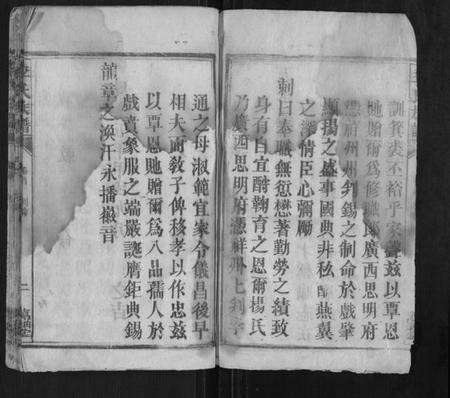 訓箕裘不裕乎家聲兹以覃恩
貤贈爾爲修職郎廣西思明府
憑祥州州判錫之制命於戲肇
顯揚之盛事國典非私酬燕翼
之深情臣心彌勵
制曰奉職無愆懋著勤勞之績致
身有自宜酧鞠育之恩爾楊氏
乃廣西思明府憑祥州七判李
通之母淑範宜家令儀昌後早
相夫而敎子俾移孝以作忠兹
以覃恩貤贈爾爲八品孺人於
戲賁象服之端嚴誕膺鉅典錫
龍章之渙汗永播徽音
二